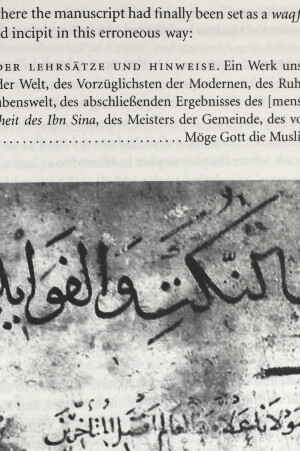 where the manuscript had finally been set as a waqf
d incipit in this erroneous way:
DER LEHRSÄTZE UND HINWEISE. Ein Werk uns
der Welt, des Vorzüglichsten der Modernen, des Ruh
ubenswelt, des abschließenden Ergebnisses des [mens
heit des Ibn Sina, des Meisters der Gemeinde, des vo
. . . . . . . . . . . . . . . . . . . . . . . . . . . . Möge Gott die Musli
النُّكَتِ وَالفَوَايِد
مولانا علامة العالم افضل المتأخرين